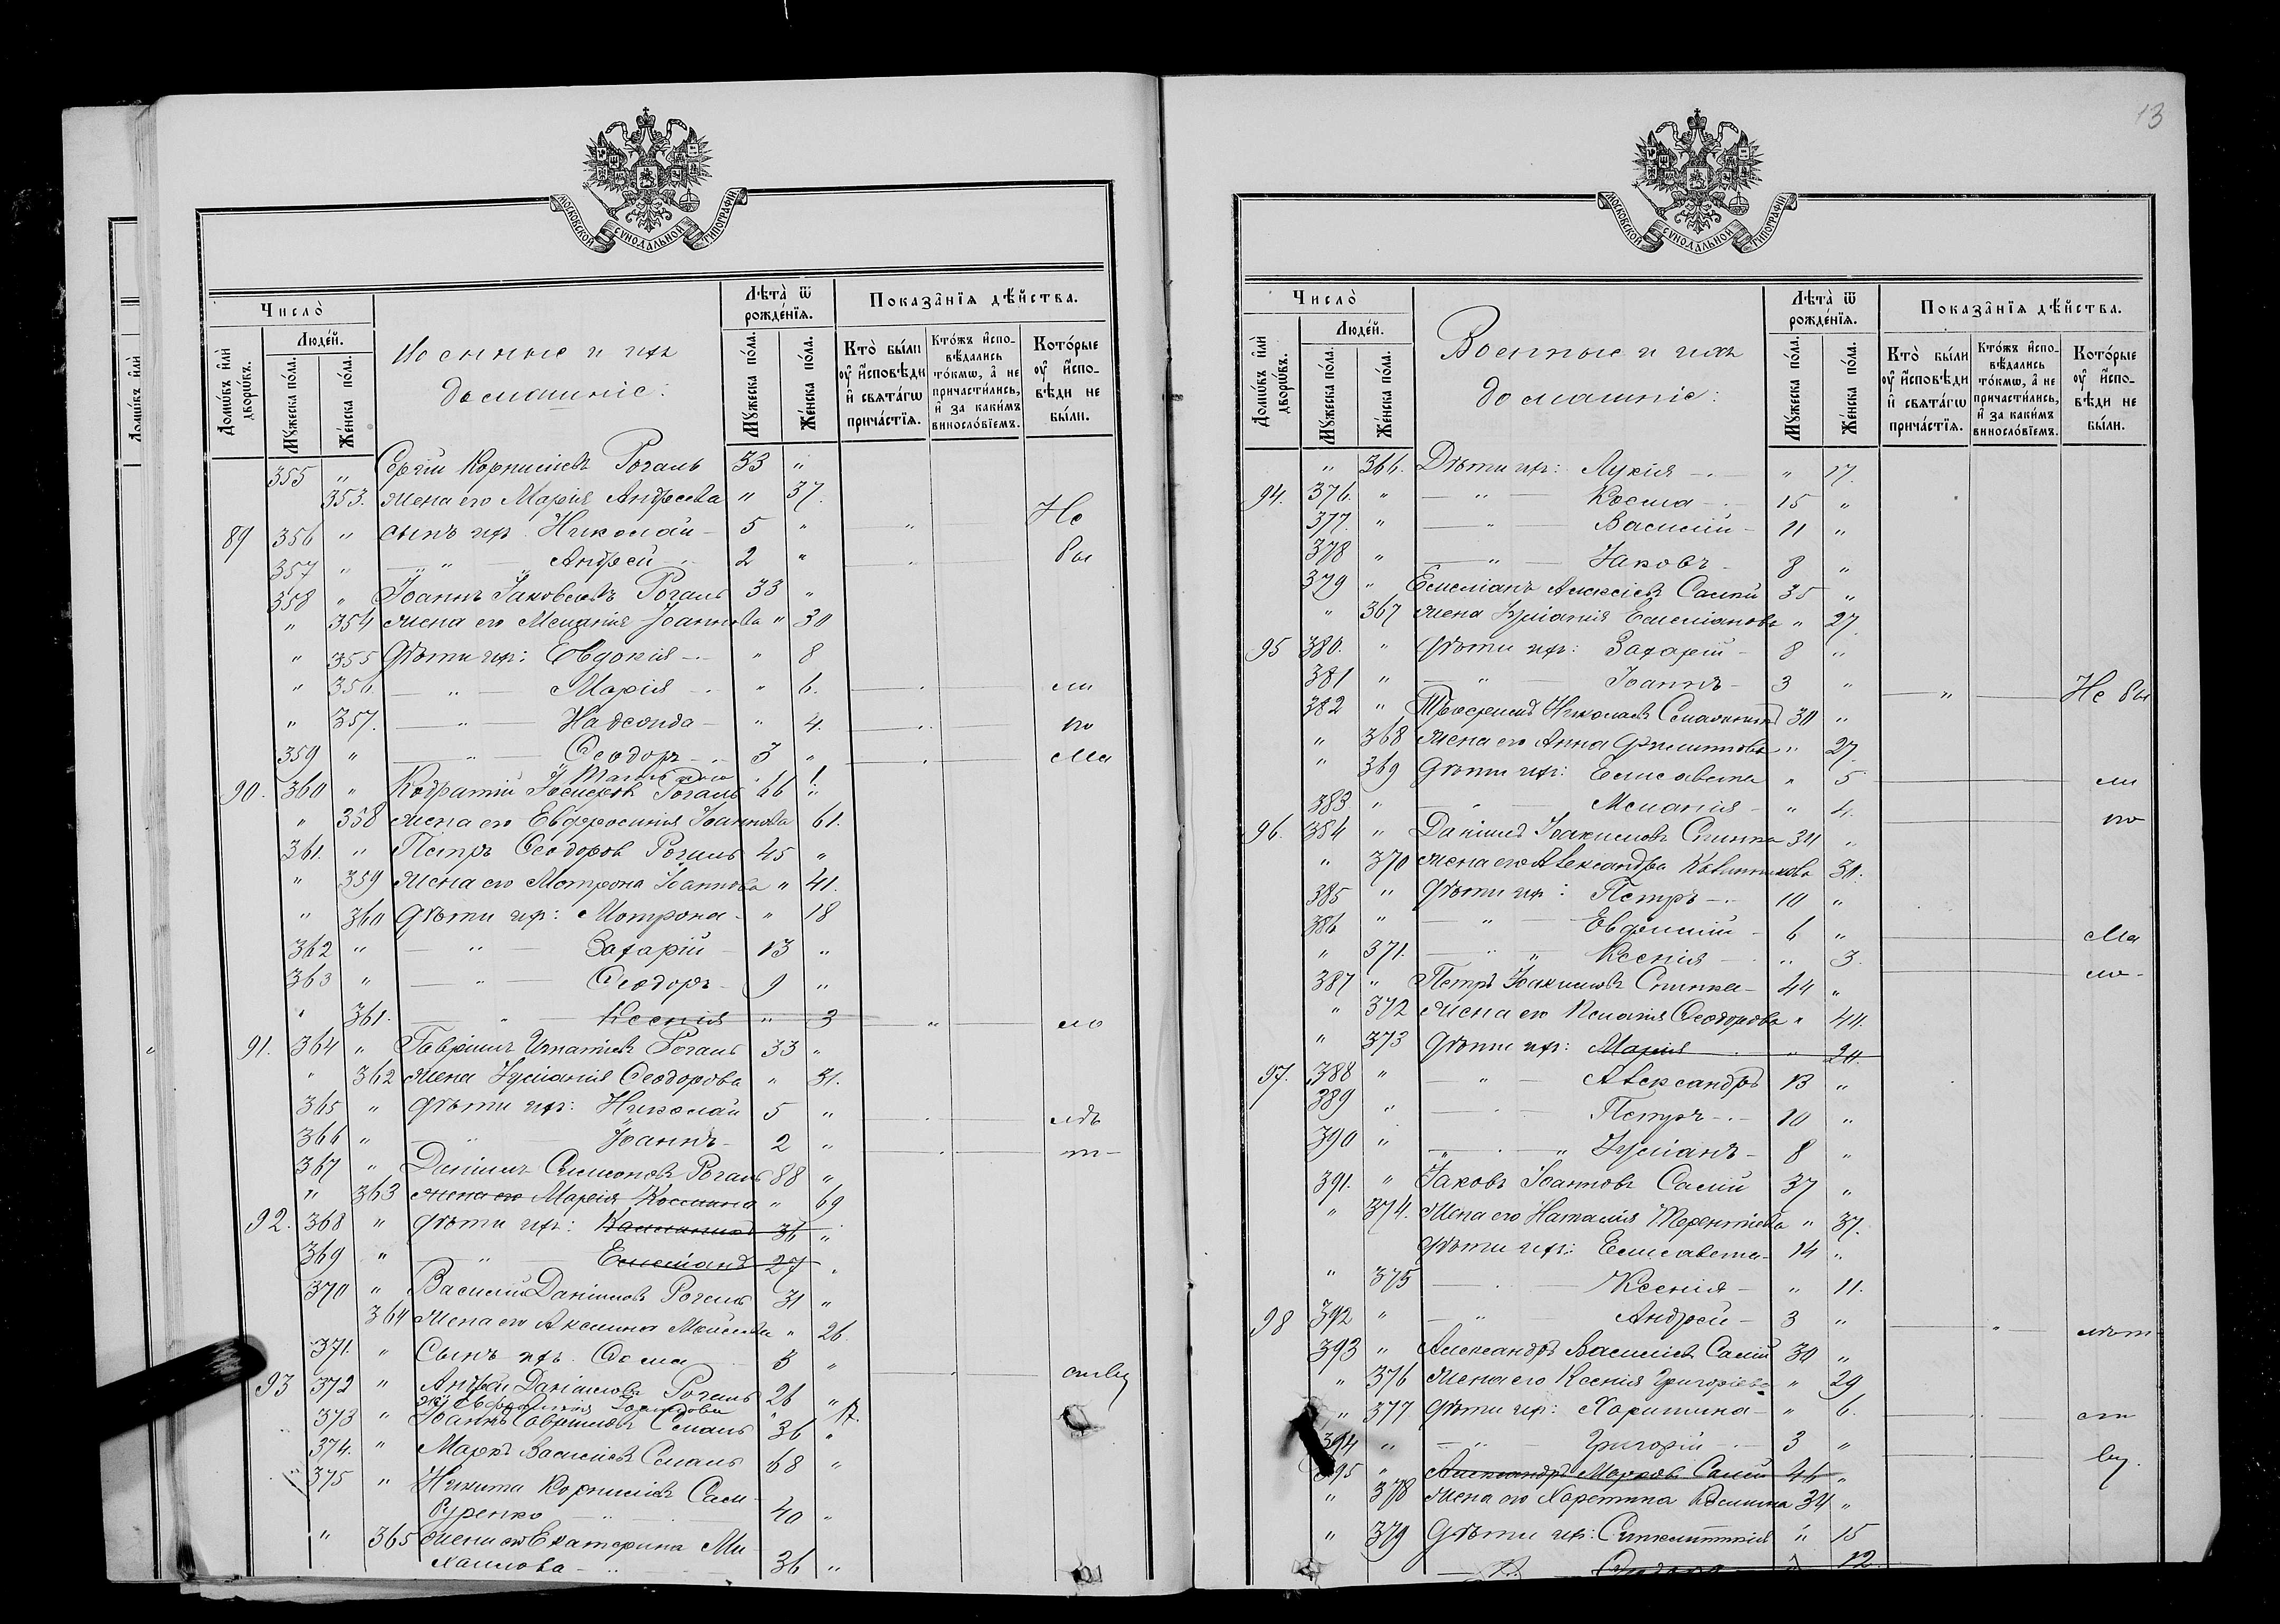 МОСКОВСКОЙ СУНОДАЛЬНОЙ ТИПОГРАФІИ
Число̀
Людей.
Домѡвъ и҆лѝ дворѡвъ.
Мꙋжеска по́ла.
Же́нска по́ла.
Военные и ихъ
домашніе:
Лѣта̀ ѿ рожде́нїѧ.
Мꙋжеска по́ла.
Же́нска по́ла.
Показа̑нїѧ дѣ́йства.
Кто̀ бы́ли оу҆ и҆сповѣди и҆ свѧта́гѡ прича́стїѧ.
Кто́жъ и҆спо­вѣдались то́кмѡ, а҆ не причасти́лись, и҆ за каки́мъ винословїемъ.
Кото́рые оу҆ и҆спо­вѣди не бы́ли.
355 " Сергій Корниліевъ Рогаль 33 "
353. жена его Марія Андреева " 37.
89 356 " сынъ ихъ Николай - 5 " " Не
357 " — " — Андрей 2 " " бы
358 " Іоаннъ Іаковлевъ Рогаль 33 "
" 354 жена его Меланія Іоаннова " 30
" 355 Дѣти ихъ: Евдокія - " 8
" 356. — " — Марія - " 6. ли
" 357. — " — Надежда - " 4. по
359 " — " — Ѳеодоръ - 3 " сла
90. 360 " Кодратій Іосифовъ Рогаль 66 "
" 358 жена его Евфросинія Іоаннова 61.
361. " Петръ Ѳеодоровъ Рогаль 45 "
" 359 жена его Мотрона Іоаннова " 41.
" 360 Дѣти ихъ: Мотрона - " 18
362 " — " — Захарій - 13 "
363 " — " — Ѳеодоръ - 9 "
" 361. — " — Ксенія " 3 " бло
91. 364 " Гавріилъ Игнатіевъ Рогаль 33 "
" 362 жена Іуліанія Ѳеодорова " 31.
365 " Дѣти ихъ: Николай 5 "
366 " — " — Іоаннъ - 2 " т-
367 " Даніилъ Симеоновъ Рогаль 88 "
" 363 жена его Марія Космина " 69
92. 368 " Дѣти ихъ: 36 "
369 " — " — Емеліанъ 27 "
370 " Василій Даніиловъ Рогаль 31 "
364 жена его Акилина Моисеева " 26.
371. " Сынъ ихъ Ѳома 3 " ству
93 372 " Андрей Даніиловъ Рогаль 26 "
373 " Іоаннъ Гавріиловъ Смаль 36 "
374. " Маркъ Василіевъ Смаль 68 "
375 " Никита Корниліевъ Сам-
40 "
" 365 жена его Екатерина Ми-
хаилова - 36 "
13
МОСКОВСКОЙ СУНОДАЛЬНОЙ ТИПОГРАФІИ
Число̀
Людей.
Домѡвъ и҆лѝ дворѡвъ.
Мꙋжеска по́ла.
Же́нска по́ла.
Военные и ихъ
домашніе:
Лѣта̀ ѿ рожде́нїѧ.
Мꙋжеска по́ла.
Же́нска по́ла.
Показа̑нїѧ дѣ́йства.
Кто̀ бы́ли оу҆ и҆сповѣди и҆ свѧта́гѡ прича́стїѧ.
Кто́жъ и҆спо­вѣдались то́кмѡ, а҆ не причасти́лись, и҆ за каки́мъ винословїемъ.
Кото́рые оу҆ и҆спо­вѣди не бы́ли.
" 366. Дѣти ихъ: Лукія - " 17.
94. 376. " — " — Косма - 15 "
377. " — " — Василій - 11 "
378 " — " — Іаковъ - 8 "
379 " Емеліанъ Алексіевъ Салій 35 "
" 367 жена Іуліанія Емеліанова " 27.
95 380. " Дѣти ихъ: Захарій - 8 "
381 " — " — Іоаннъ - 3 " " Не бы
382 " Николаевъ 30 "
" 368 жена его Анна Филиппова " 27.
" 369 Дѣти ихъ: Елисавета " 5 ли
383. " — " — Меланія - " 4. по
96. 384 " Даніилъ Іоакимовъ Спинка 34 "
" 370 жена его Александра 30.
385 " Дѣти ихъ: Петръ - 10 "
386 " — " — Евфимій - 6 " сла
" 371. — " — Ксенія - " 3.
387 " Петръ Іоакимовъ Спинка - 44 "
" 372 жена его Ѳеодорова " 44.
" 373 Дѣти ихъ: Марія " 20.
97. 388 " — " — Александръ 13 "
389 " — " — Петръ - 10 "
390 " — " — Іуліанъ - 8 "
391. " Іаковъ Іоанновъ Салій 37 "
" 374. жена его Наталія Терентіева " 37.
Дѣти ихъ: Елисавета - 14 "
" 375 — " — Ксенія - " 11.
98 392 " — " — Андрей - 3 " "
393 " Александръ Василіевъ Салій 30 "
" 376 жена его Ксенія Григоріева " 29
" 377 Дѣти ихъ: Харитина - " 6. ст
394 " — " — Григорій 3 " ву.
395 " Александръ Марковъ Салій 44 "
" 378 жена его Харитина 34 "
" 379 Дѣти ихъ: Синклитикія " 15
12.